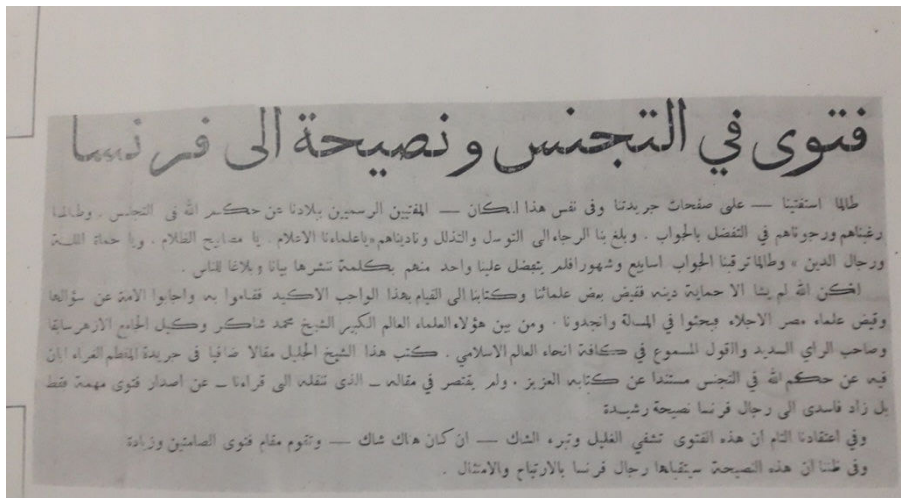 فتوى في التجنس ونصيحة الى فرنسا
طالما استفتينا — على صفحات جريدتنا وفى نفس هذا المكان — المفتيين الرسميين ببلادنا عن حكم الله فى التجنس . وطالما
رغبناهم ورجوناهم في التفضل بالجواب . وبلغ بنا الرجاء الى التوسل والتذلل وناديناهم «ياعلماءنا الاعلام . يا مصابيح الظلام . ويا حماة الملة
ورجال الدين » وطالما ترقبنا الجواب اسابيع وشهورا فلم يتفضل علينا واحد منهم بكلمة ننشرها بيانا وبلاغا للناس .
لكن الله لم يشا الا حماية دينه فقيض بعض علمائنا وكتابنا الى القيام بهذا الواجب الاكيد فقاموا به واجابوا الامة عن سؤالها
وقيض علماء مصر الاجلاء فبحثوا في المسالة وانجدونا . ومن بين هؤلاء العلماء العالم الكبير الشيخ محمد شاكر وكيل الجامع الازهر سابقا
وصاحب الراي السديد والقول المسموع في كافة انحاء العالم الاسلامي . كتب هذا الشيخ الجليل مقالا ضافيا فى جريدة المقطم الغراء ابان
فيه عن حكم الله في التجنس مستندا عن كتابه العزيز . ولم يقتصر في مقاله ــ الذى ننقله الى قراءنا ــ عن اصدار فتوى مهمة فقط
بل زاد فاسدى الى رجال فرنسا نصيحة رشيدة
وفي اعتقادنا التام ان هذه الفتوى تشفي الغليل وتبرء الشك — ان كان هناك شاك — وتقوم مقام فتوى الصامتين وزيادة
وفى ظننا ان هذه النصيحة سيتقبلها رجال فرنسا بالارتياح والامتثال .